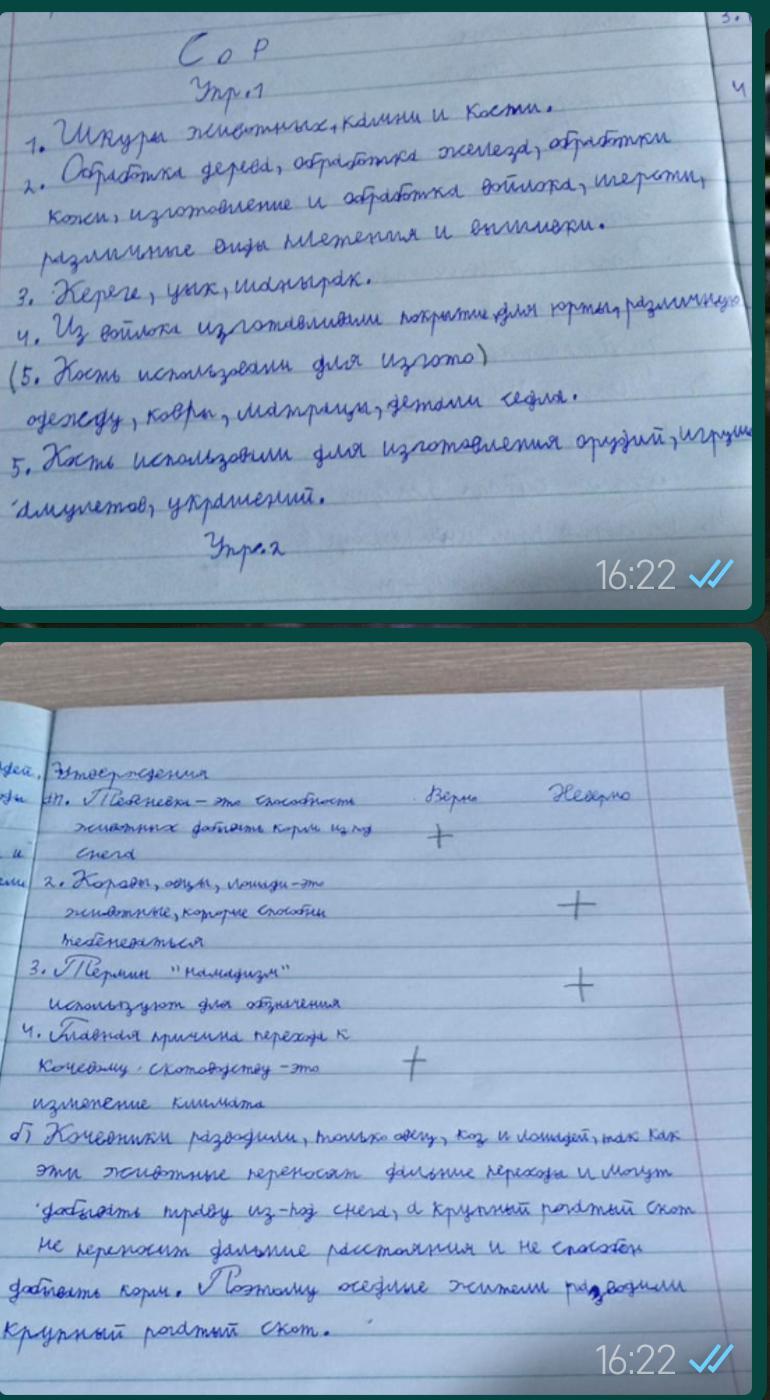 3.
Ч
СОР
Упр.1
1. Шкуры животных, камни и кости.
2. Обработка дерева, обработка железа, обработки
кожи, изготовление и обработка войлока, шерсти,
различные виды плетения и вышивки.
3. Кереге, уык, шанырак.
4. Из войлока изготавливали покрытие для юрты, различную
(5. Кость использовали для изгото)
одежду, ковры, матрацы, детали седла.
5. Кость использовали для изготовления орудий, игруш
амулетов, украшений.
Упр.2
16:22
Утверждения
1. Тебеневка – это способность Верно Неверно
животных добывать корм из под +
снега
и
2. Коровы, овцы, лошади – это
животные, которые способны +
тебеневаться
3. Термин "намадизм" +
используют для обозначения
4. Главная причина перехода к
кочевому скотоводству – это +
изменение климата
б) Кочевники разводили, только овец, коз и лошадей, так как
эти животные переносят дальние переходы и могут
добывать траву из-под снега, а крупный рогатый скот
не переносит дальние расстояния и не способен
добывать корм. Поэтому оседлые жители разводили
крупный рогатый скот.
16:22